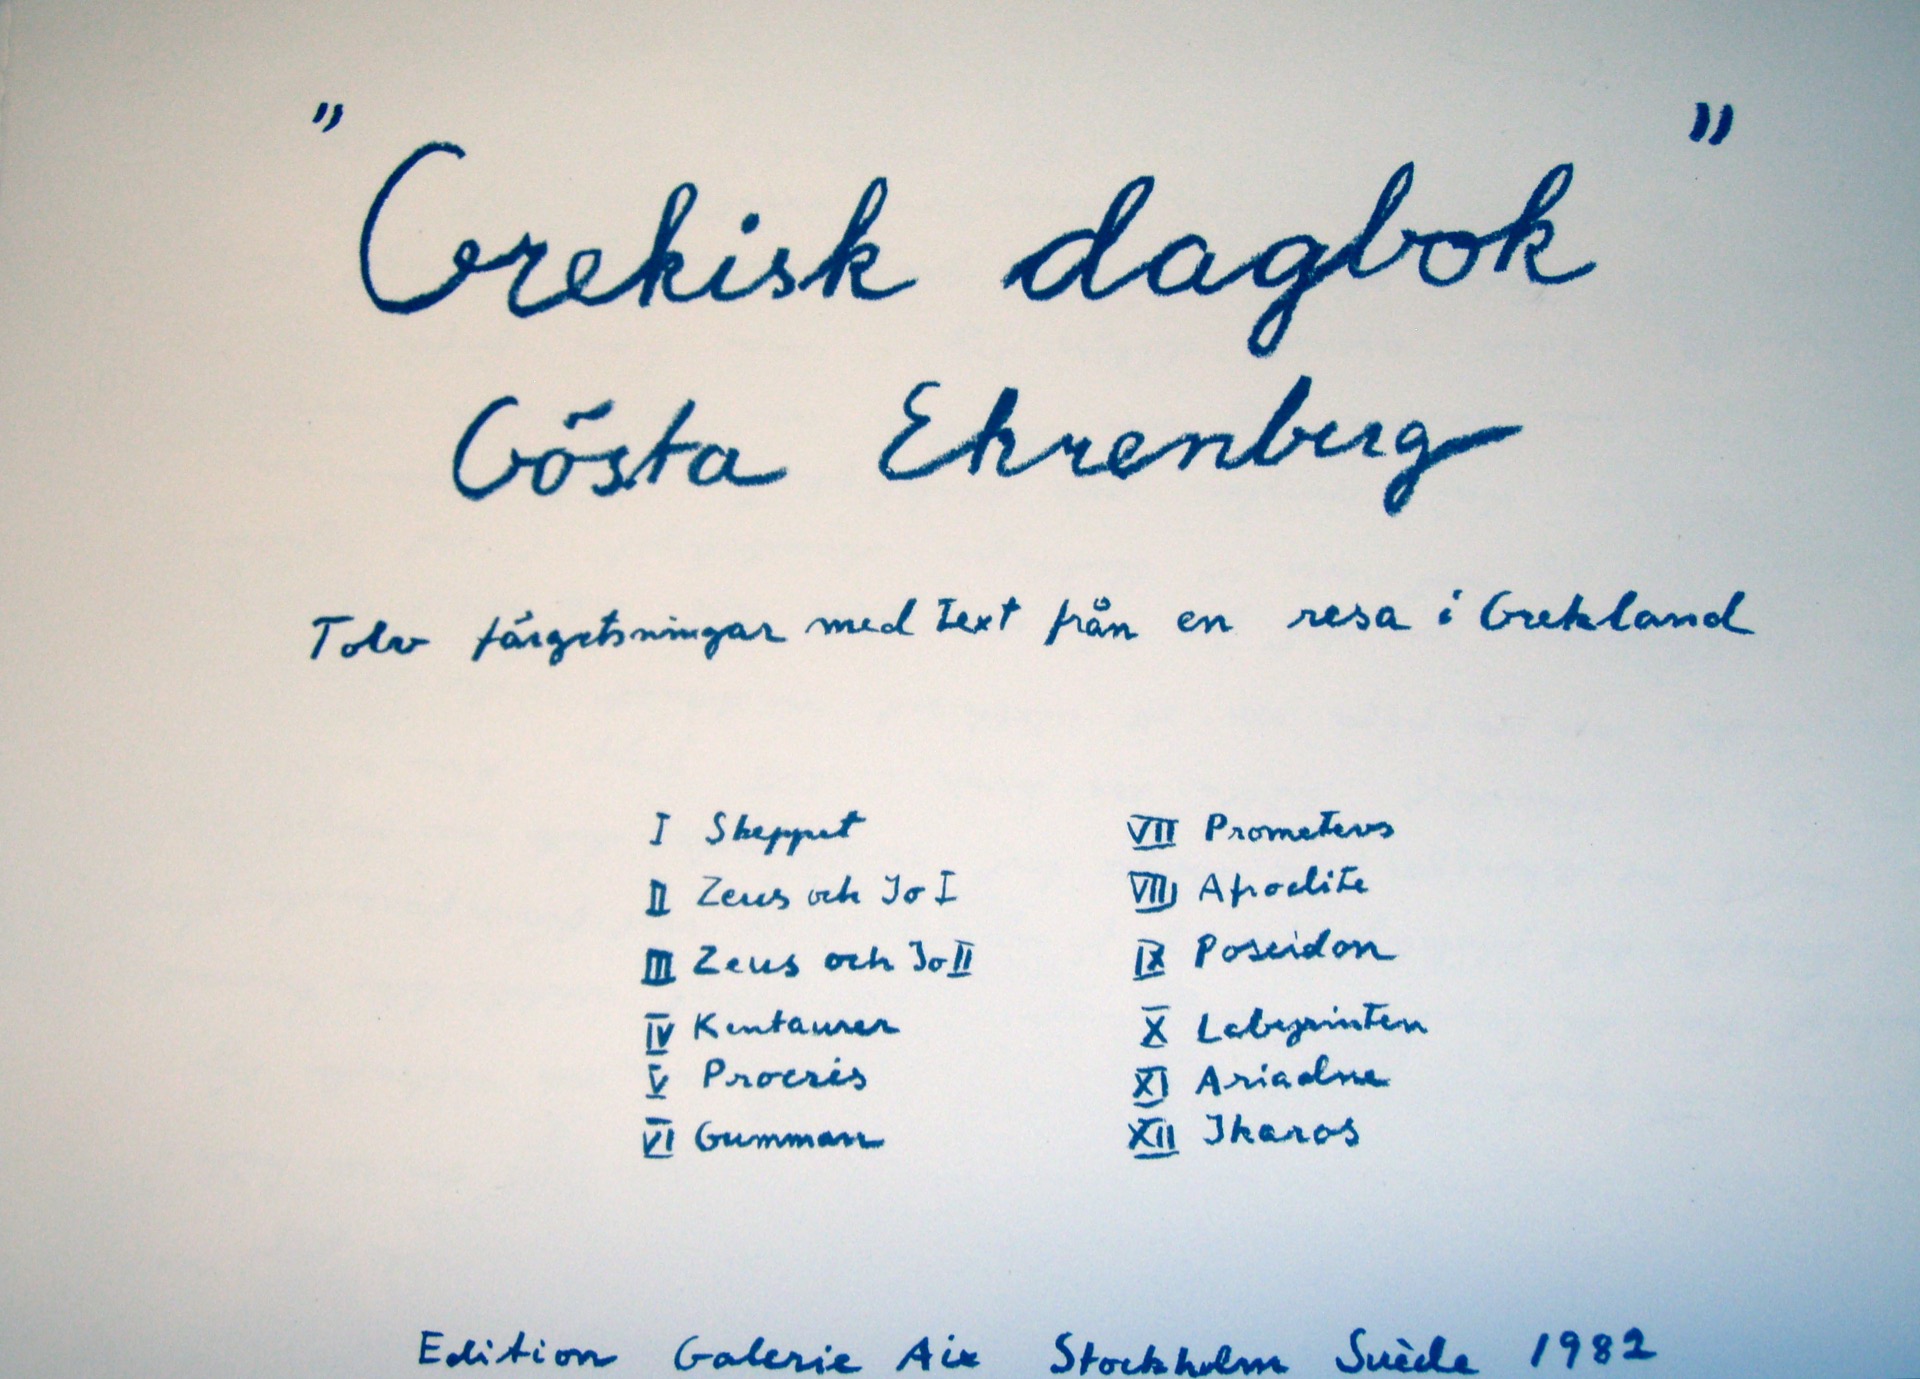 "Grekisk dagbok"
Gösta Ehrenberg
Tolv färgetsningar med text från en resa i Grekland
I Skeppet
II Zeus och Jo I
III Zeus och Jo II
IV Kentaurer
V Procris
VI Gumman
VII Prometevs
VIII Afrodite
IX Poseidon
X Labyrinten
XI Ariadne
XII Ikaros
Edition Galerie Aix Stockholm Suède 1982